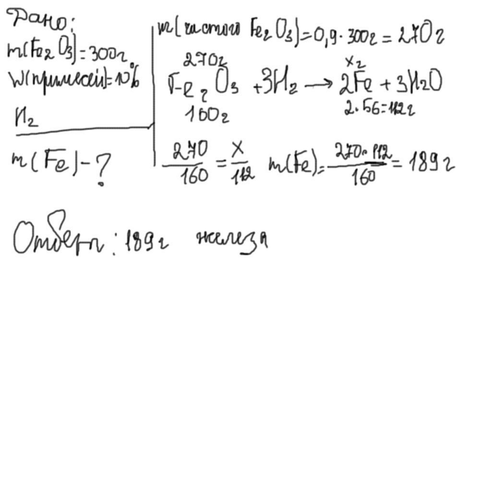 Дано:
m(Fe₂O₃)=300г
W(примесей)=10%
H₂
m(Fe)-?
m(чистого Fe₂O₃)=0,9·300г=270г
270г x г
Fe₂O₃ + 3H₂ → 2Fe + 3H₂O
160г 2·56=112г
270/160 = x/112 m(Fe)= 270·112/160 = 189г
Ответ: 189г железа